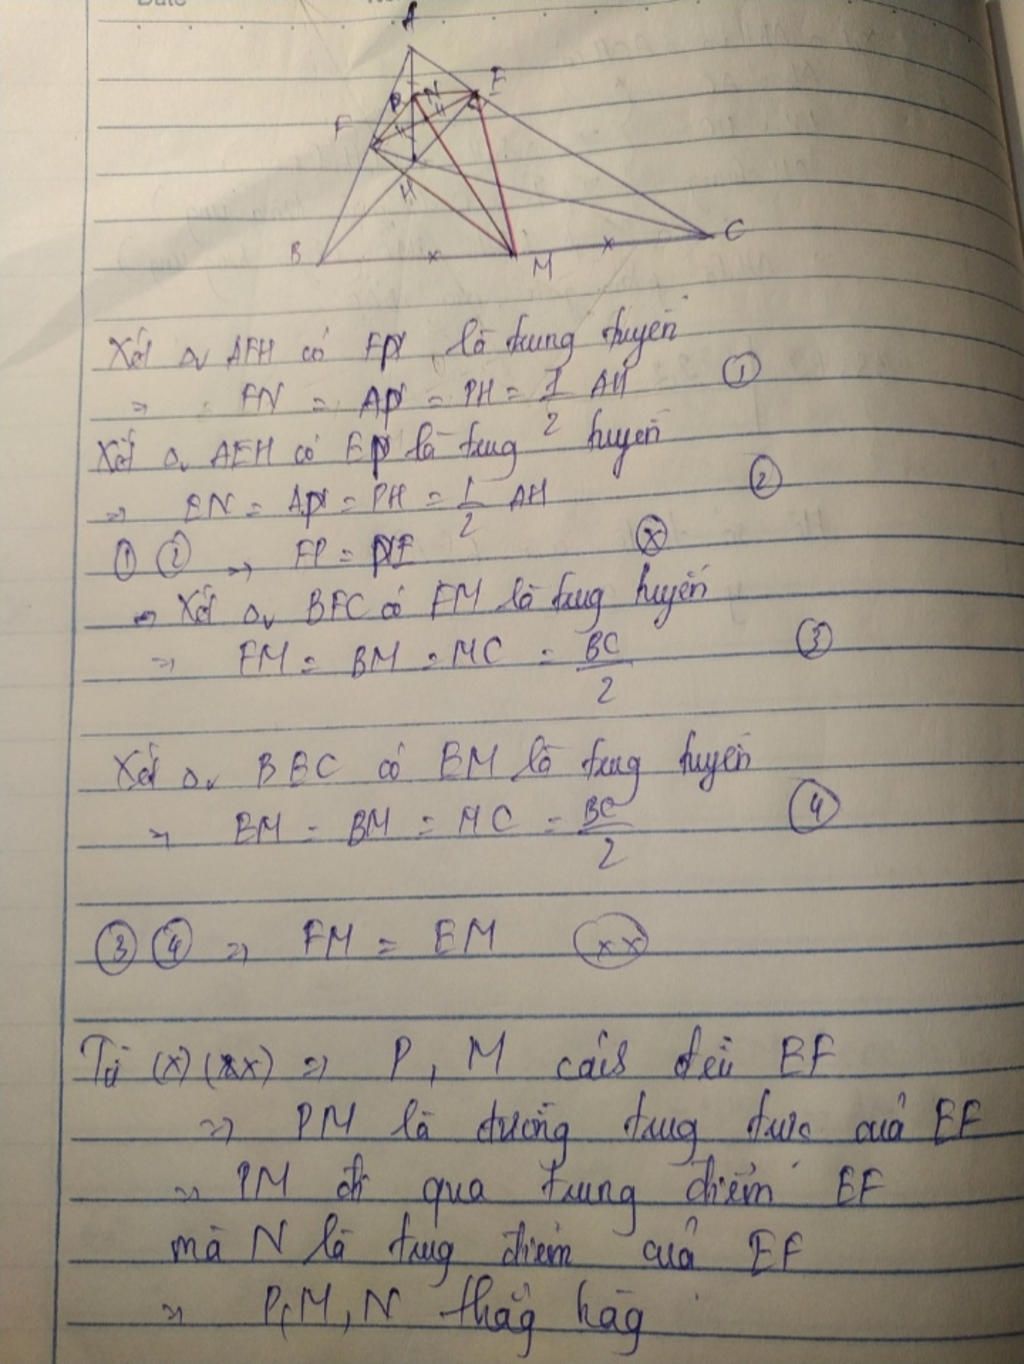 Date
A
P N E
F
H
B M C
Xét Δv AFH có FP là trung tuyến
=> FN = AP = PH = 1/2 AH ①
Xét Δv AEH có EP là trug tuyến
=> EN = AP = PH = 1/2 AH ②
① ② => FP = PE ⓧ
=> Xét Δv BFC có FM là trug tuyến
=> FM = BM = MC = BC/2 ③
Xét Δv BEC có EM là trug tuyến
=> EM = BM = MC = BC/2 ④
③ ④ => FM = EM (xx)
Từ (x) (xx) => P, M cách đều EF
=> PM là đường trug trực của EF
=> PM đi qua trung điểm EF
mà N là trug điểm của EF
=> P, M, N thẳg hàg